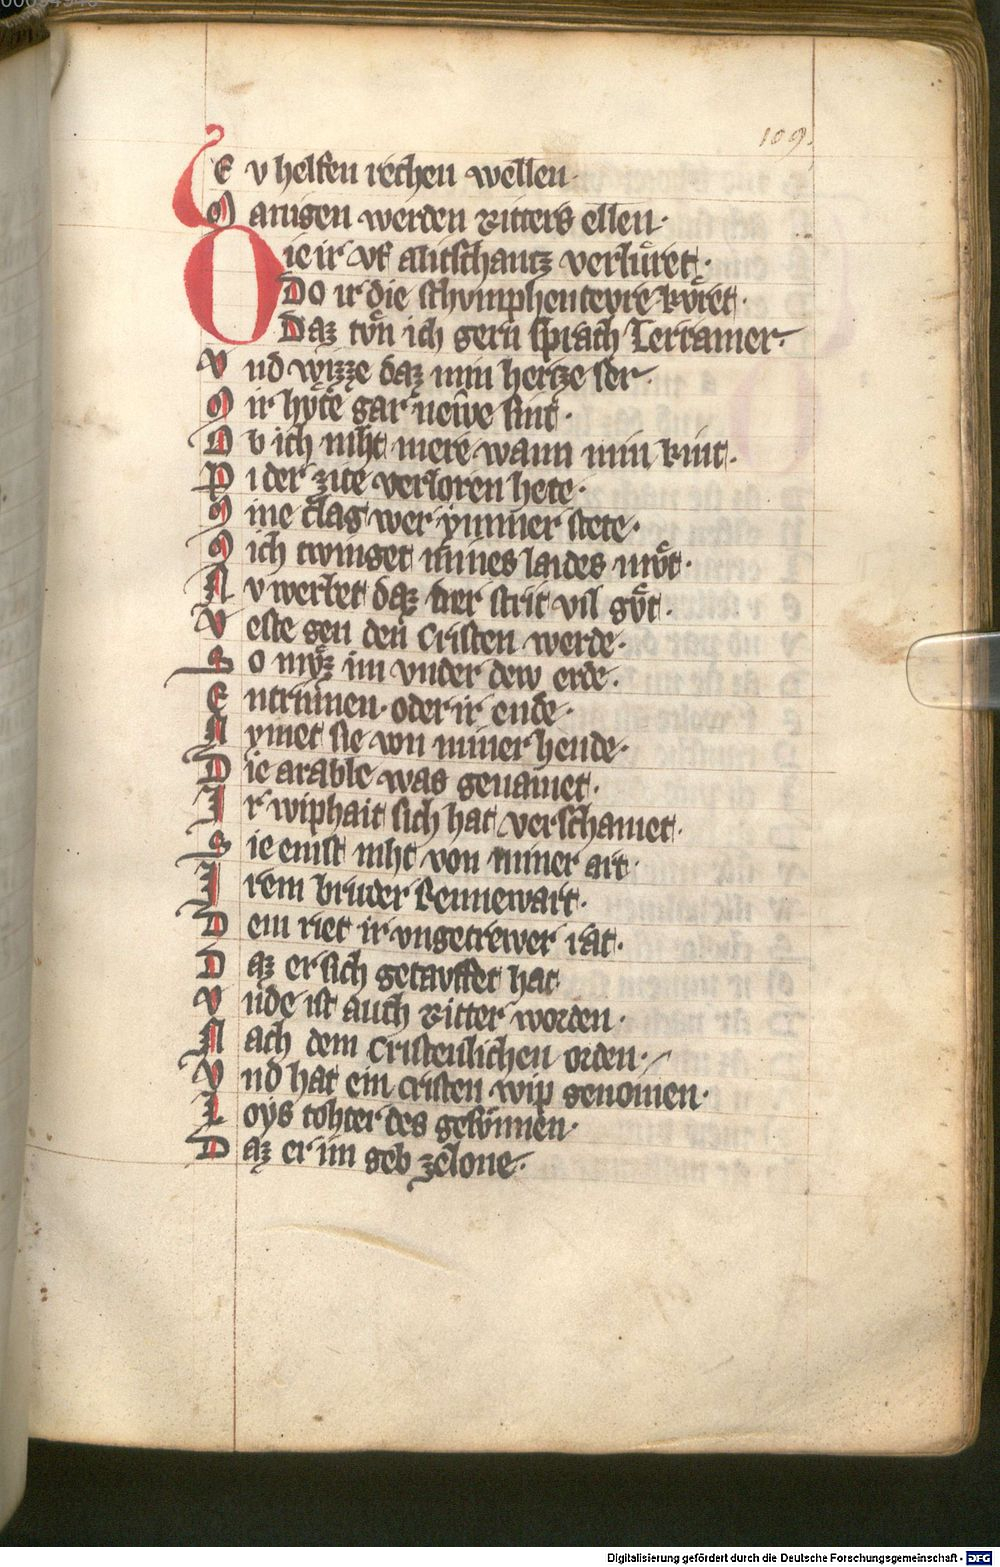 109.
E v helfen rechen wellen·
M anigen werden Ritters ellen·
Die ir vf alitschantz verlu̍ret·
Do ir die schvmphentevre kvͦret·
Daz tvͦn ich gern sprach Terramer·
V nd wizze daz min hertze ser·
M ir hvͤte gar neẅe sint·
O b ich niht mere wann min kint·
P i der zite verloren hete·
M ine clag wer ymmer stete·
M ich twinget mines laides mvͦt·
N v werbet daz der strit vil gvͦt·
V este gen den Cristen werde·
S o mvͤz im vnder dew erde·
E ntrinnen· oder ir ende·
N ymet sie von miner hende·
D ie arable was genamet·
I r wiphait sich hat verschamet·
S ie enist niht von miner art·
I rem bruder Rennewart·
D em riet ir vngetrewer rat·
D az er sich getavffet hat
V nde ist auch Ritter worden·
N ach dem Cristenlichen orden·
V nd hat ein cristen wip genomen·
L oys tohter des gewinnen·
D az er im geb zelone·
Digitalisierung gefördert durch die Deutsche Forschungsgemeinschaft - DFG